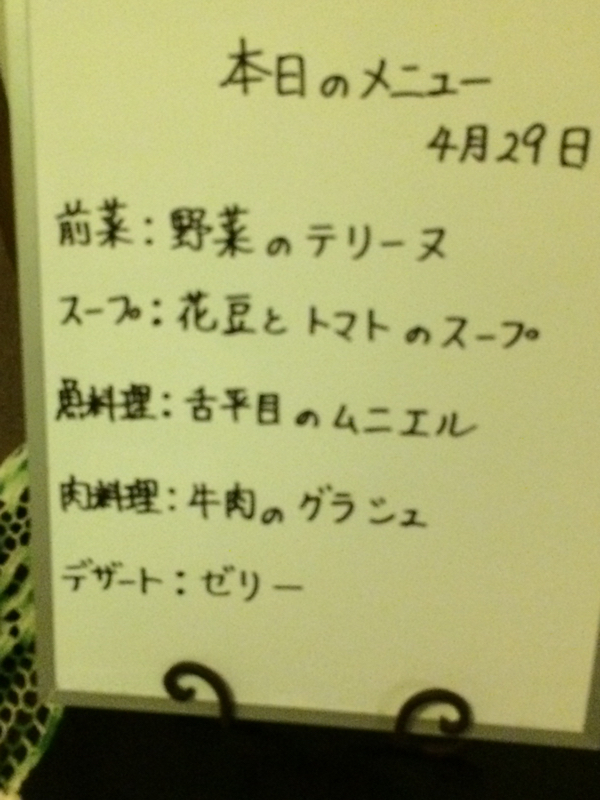 本日のメニュー
4月29日
前菜：野菜のテリーヌ
スープ：花豆とトマトのスープ
魚料理：舌平目のムニエル
肉料理：牛肉のグラシュ
デザート：ゼリー